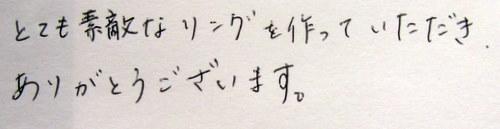 とても素敵なリングを作っていただき
ありがとうございます。